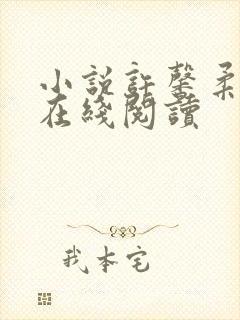 小說許馨柔
在綫閱讀
我本宅